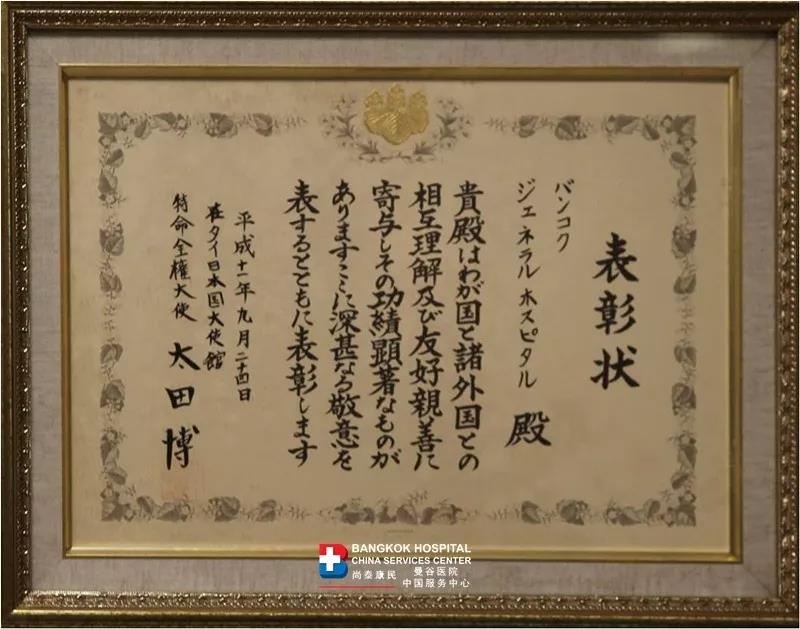 表彰状
バンコク
ジェネラルホスピタル 殿
貴殿はわが国と諸外国との
相互理解及び友好親善に
寄与しその功績顕著なものが
ありますここに深甚なる敬意を
表するとともに表彰します
平成十一年九月二十四日
在タイ日本国大使館
特命全権大使 太田博
BANGKOK HOSPITAL
CHINA SERVICES CENTER
尚泰康民 曼谷医院
中国服务中心